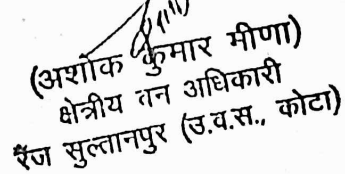 (अशोक कुमार मीणा)
क्षेत्रीय वन अधिकारी
रेंज सुल्तानपुर (उ.व.स., कोटा)